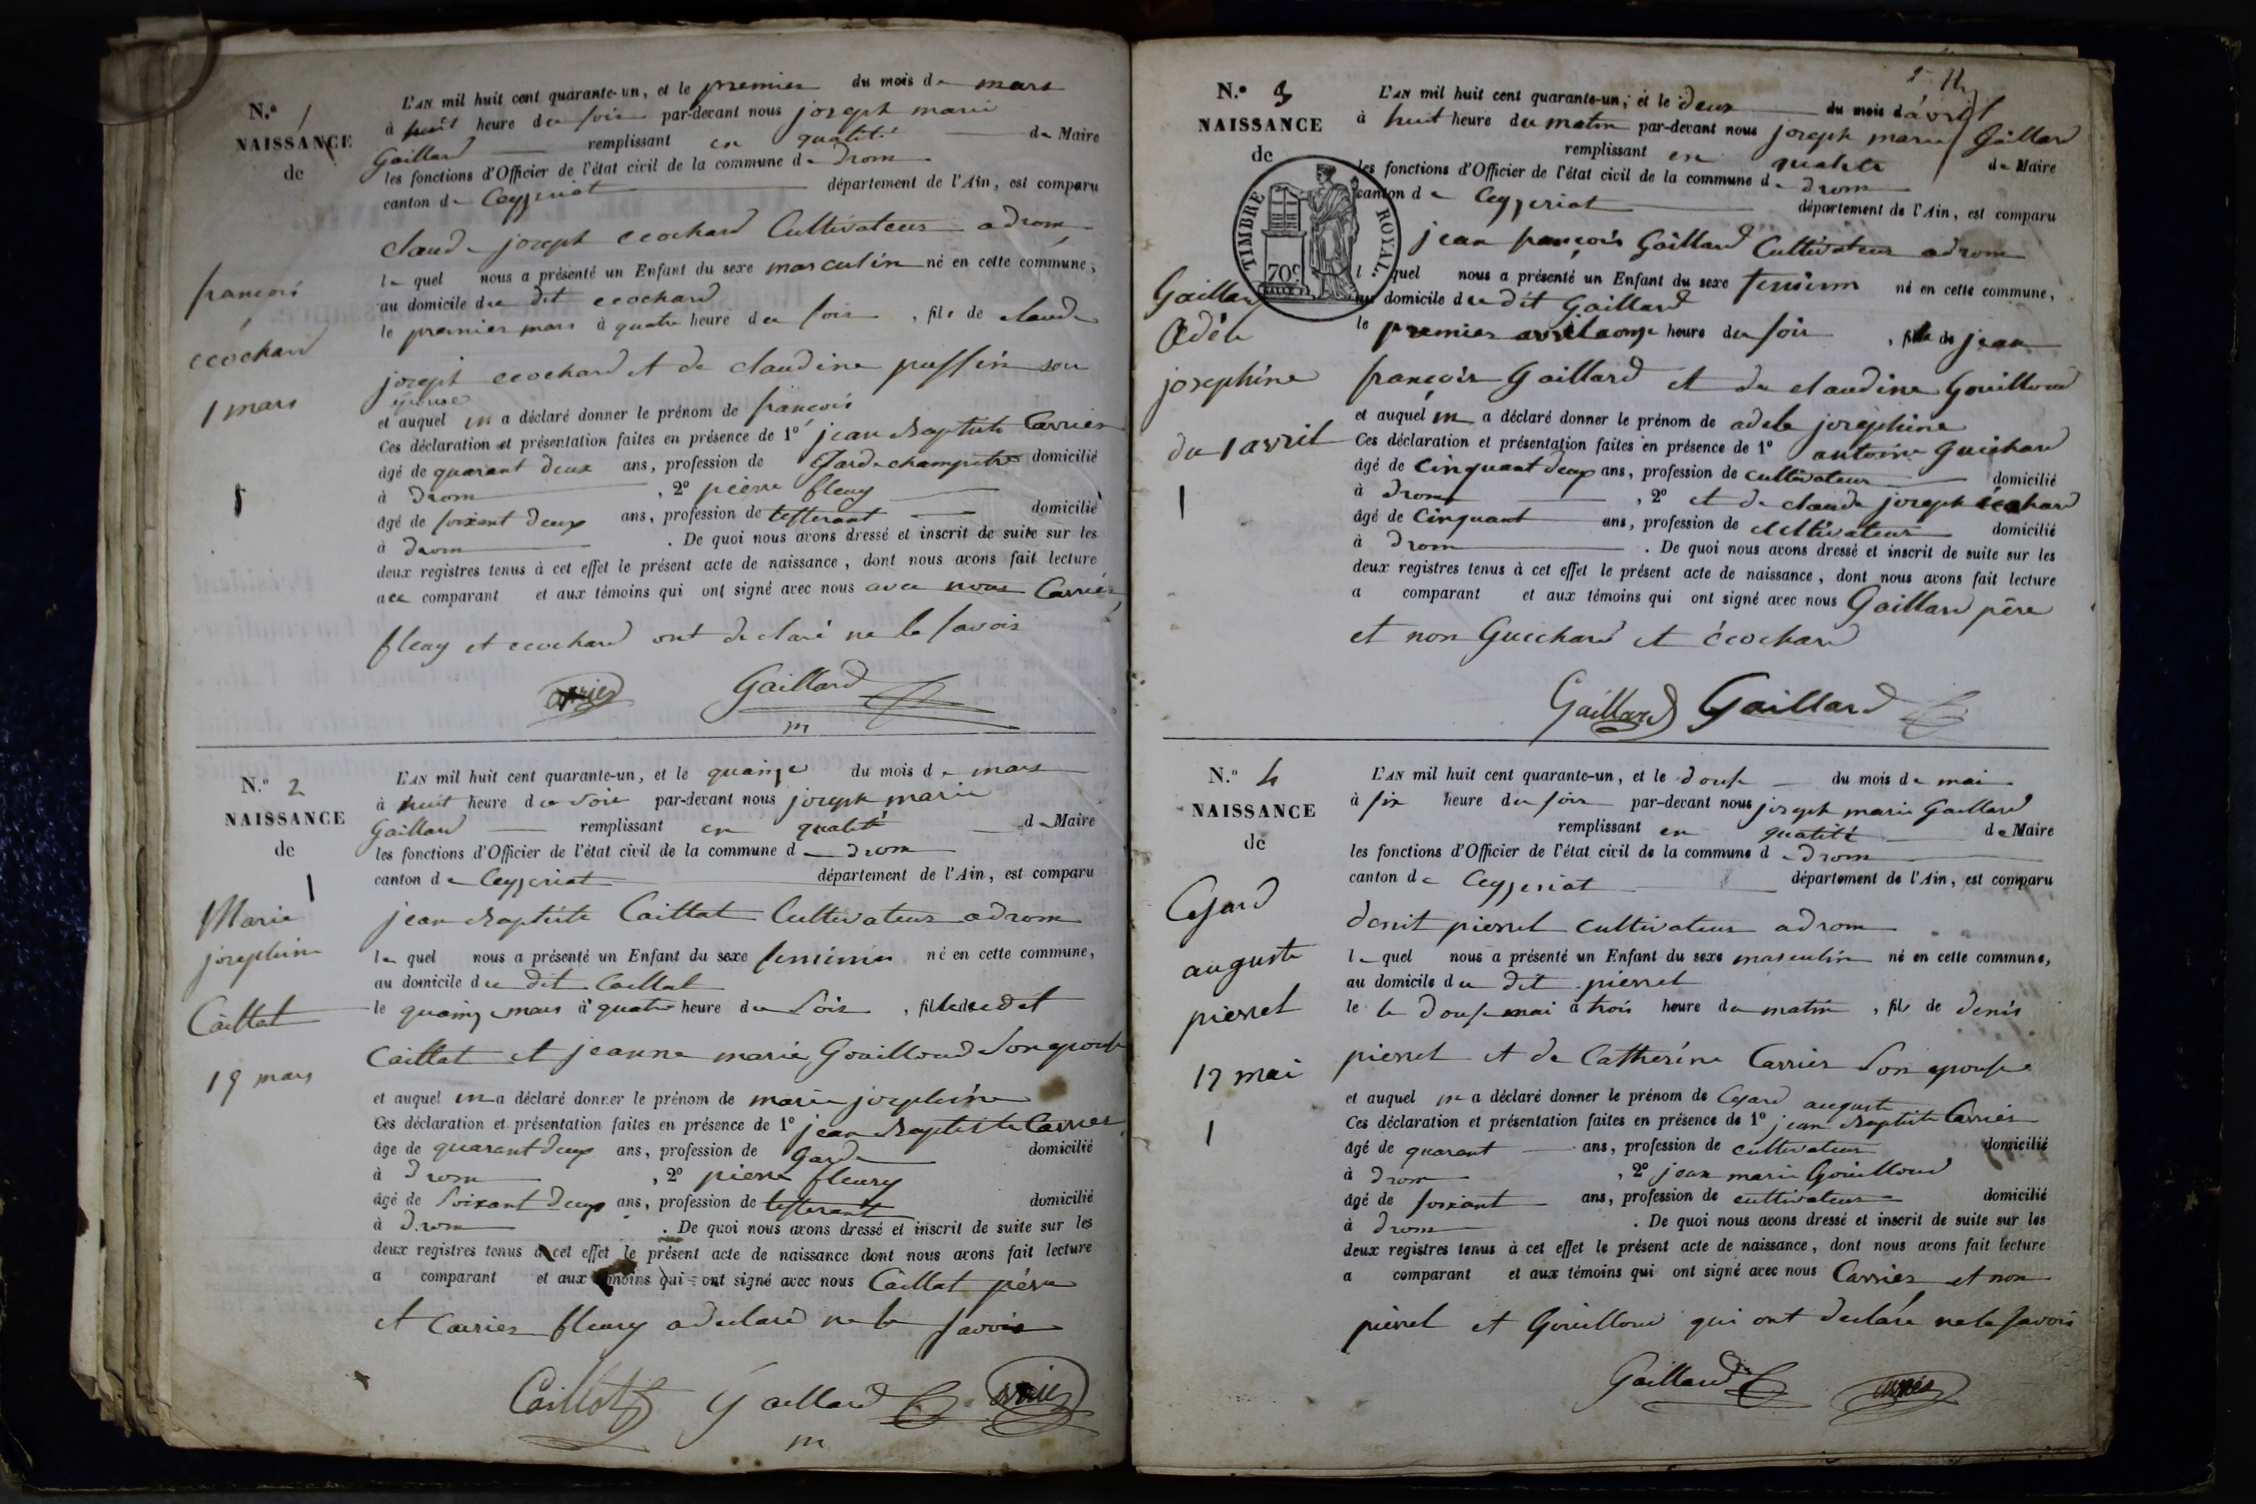 N.º 1
NAISSANCE
de
françois
ecochard
1 mars
1
L'AN mil huit cent quarante-un, et le premier du mois de mars
à huit heure du soir par-devant nous joseph marie
Gaillard remplissant en qualité de Maire
les fonctions d'Officier de l'état civil de la commune de drom
canton de Ceyzeriat département de l'Ain, est comparu
claude joseph ecochard Cultivateur a drom
le quel nous a présenté un Enfant du sexe masculin né en cette commune,
au domicile du dit ecochard
le premier mars à quatre heure du soir, fils de claude
joseph ecochard et de claudine puffin son
épouse
et auquel in a déclaré donner le prénom de françois
Ces déclaration et présentation faites en présence de 1º jean Baptiste Carrier
âgé de quarant deux ans, profession de Garde champetre domicilié
à drom, 2º pierre fleury
âgé de soixant deux ans, profession de tisserant domicilié
à drom. De quoi nous avons dressé et inscrit de suite sur les
deux registres tenus à cet effet le présent acte de naissance, dont nous avons fait lecture
a ce comparant et aux témoins qui ont signé avec nous avec nous Carrier
fleury et ecochard ont declaré ne le savoir
Carrier Gaillard
m
N.º 2
NAISSANCE
de
1
Marie
josephine
Caillat
15 mars
L'AN mil huit cent quarante-un, et le quainze du mois de mars
à huit heure du soir par-devant nous joseph marie
Gaillard remplissant en qualité de Maire
les fonctions d'Officier de l'état civil de la commune de drom
canton de Ceyzeriat département de l'Ain, est comparu
jean Baptiste Caillat Cultivateur a drom
le quel nous a présenté un Enfant du sexe feminin né en cette commune,
au domicile du dit Caillat
le quainze mars à quatre heure du soir, fille de dit
Caillat et jeanne marie Gouilloud son epouse
et auquel in a déclaré donner le prénom de marie josephine
Ces déclaration et présentation faites en présence de 1º jean Baptiste Carrier
âge de quarant deux ans, profession de Garde domicilié
à drom, 2º pierre fleury
âgé de soixant deux ans, profession de tisserant domicilié
à drom. De quoi nous avons dressé et inscrit de suite sur les
deux registres tenus à cet effet le présent acte de naissance dont nous avons fait lecture
a comparant et aux témoins qui ont signé avec nous Caillat père
et Carrier fleury a declaré ne le savoir
Caillat Gaillard Carrier
m
N.º 3
NAISSANCE
de
TIMBRE ROYAL.
70 c
Gaillard
Adéle
josephine
du 1 avril
1
L'AN mil huit cent quarante-un, et le deux du mois d'avril
à huit heure du matin par-devant nous joseph marie Gaillard
remplissant en qualité de Maire
les fonctions d'Officier de l'état civil de la commune de drom
canton de Ceyzeriat
département de l'Ain, est comparu
jean françois Gaillard Cultivateur a drom
l quel nous a présenté un Enfant du sexe feminin né en cette commune,
au domicile du dit Gaillard
le premier avril a onze heure du soir, fille de jean
françois Gaillard et de claudine Gouilloud
et auquel in a déclaré donner le prénom de adele josephine
Ces déclaration et présentation faites en présence de 1º antoine Guichard
âgé de Cinquant deux ans, profession de cultivateur domicilié
à drom, 2º et de claude joseph écochard
âgé de Cinquant ans, profession de cultivateur domicilié
à drom. De quoi nous avons dressé et inscrit de suite sur les
deux registres tenus à cet effet le présent acte de naissance, dont nous avons fait lecture
a comparant et aux témoins qui ont signé avec nous Gaillard père
et non Guichard et écochard
Gaillard Gaillard
N.º 4
NAISSANCE
de
Cesard
auguste
pierrel
12 mai
1
L'AN mil huit cent quarante-un, et le douse du mois de mai
à six heure du soir par-devant nous joseph marie Gaillard
remplissant en qualité de Maire
les fonctions d'Officier de l'état civil de la commune de drom
canton de Ceyzeriat département de l'Ain, est comparu
denit pierrel cultivateur a drom
le quel nous a présenté un Enfant du sexe masculin né en cette commune,
au domicile du dit pierrel
le le douse mai à trois heure du matin, fils de denis
pierrel et de Catherine Carrier son epouse
et auquel in a déclaré donner le prénom de Cesard auguste
Ces déclaration et présentation faites en présence de 1º jean Baptiste Carrier
âgé de quarant ans, profession de cultivateur domicilié
à drom, 2º jean marie Gouilloud
âgé de soixant ans, profession de cultivateur domicilié
à drom. De quoi nous avons dressé et inscrit de suite sur les
deux registres tenus à cet effet le présent acte de naissance, dont nous avons fait lecture
a comparant et aux témoins qui ont signé avec nous Carrier et non
pierrel et Gouilloud qui ont declaré ne le savoir
Gaillard Carrier